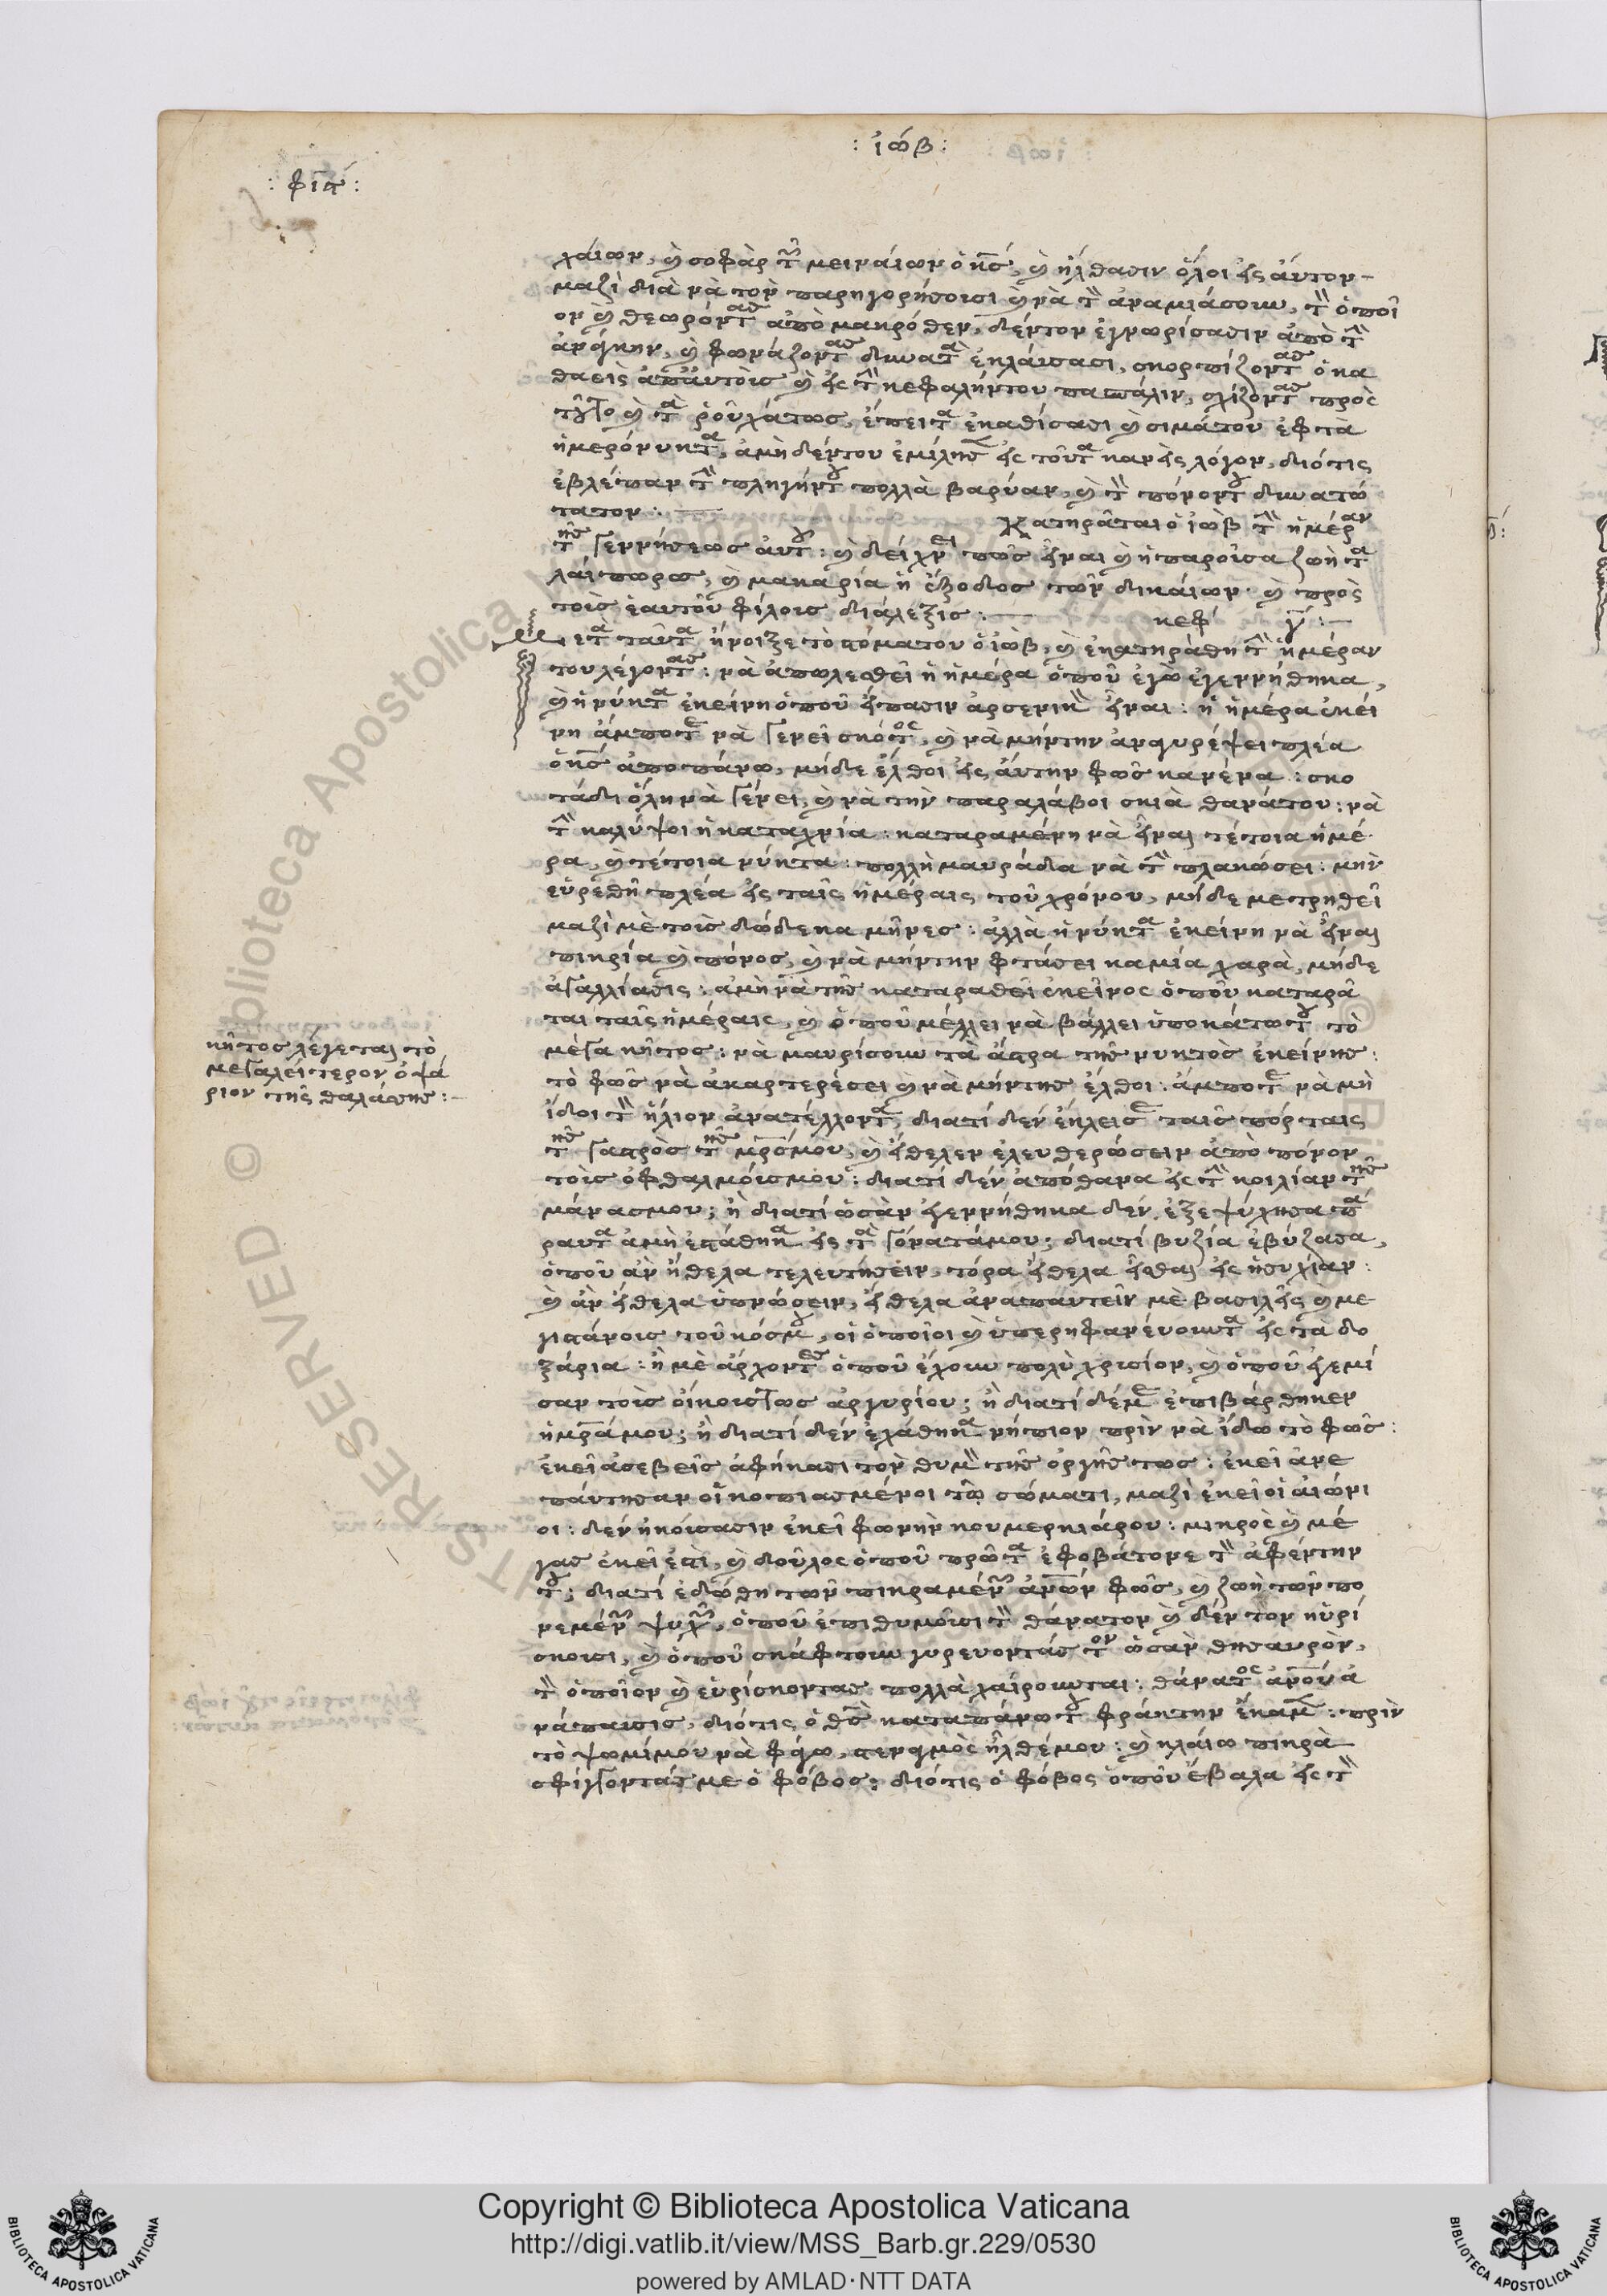 : ἰώβ :
: φιϛ :
χάιων, καὶ σοφὰρ τῶν μειναίων ὁ κης, καὶ ἦλθασιν ὅλοι εἰς ἄυτον
μαζὶ διὰ νὰ τὸν παρηγορήσοισι καὶ νὰ τὸν ἀναμιάσουν, τὸν ὁποῖ
ον καὶ θεωρόντας ἀπὸ μακρόθεν, δέντον ἐγνωρίσασιν ἀπὸ τὴν
ἀρχήνην, καὶ φωνάζοντας δυνατὰ ἐκλάυσασι, σκορπίζοντας ὁ κα
θαεὶς
καὶ εἰς τὴν κεφαλήντου πασπάλιν, σχίζοντας πρὸς
τοῦτο καὶ τὰ ῥοῦχάτως, ἔπειτα ἐκαθίσασι καὶ σιμάτου ἐφτα
ἡμερόνυκτα, ἀμὴ δέντου ἐμίλησε εἰς τοῦτα κανεὶς λόγον, διότις
ἐβλέπαν τὴν πληγήντου πολλὰ βαρύαν, καὶ τὸν πόνοντου δυνατώ
τατον : Καταρᾶται ὁ ἰὼβ τὴν ἡμέραν
τῆς γεννήσεως ἀυτοῦ : καὶ δείχνει πῶς εἶναι καὶ ἡ παροῖσα ζωὴ τα
λαίπωρος, καὶ μακαρία ἡ ἔξοδος τῶν δικάιων· καὶ πρὸς
τοῖς ἑαυτοῦ φίλοις διάλεξις : κεφ γ :
Μετὰ ταῦτα ἤνοιξε τὸ στόματου ὁ ἰὼβ, καὶ ἐκατηράθη τὴν ἡμέραν
του λέγοντας : νὰ ἀπωλεσθεῖ ἡ ἡμέρα ὁποῦ ἐγὼ ἐγεννήθηκα,
καὶ ἡ νύκτα ἐκείνη ὁποῦ εἴπασιν ἀρσενικὸν εἶναι : ἡ ἡμέρα ἐκεί
νη ἄμποτε νὰ γενεῖ σκότος, καὶ νὰ μήντην ἀνagυρέψει πλέα
ὁ κης ἀποπάνω, μήδε ἔλθοι εἰς ἄυτην φῶς κανένα : σκο
τάδι ὅλη νὰ γένει, καὶ νὰ τὴν παραλάβοι σκιὰ θανάτου : νὰ
τὴν καλύψοι ἡ καταχνία : καταραμένη νὰ εἶναι τέτοια ἡμέ
ρα, καὶ τέτοια νύκτα : πολλὴ μαυράδα νὰ τὴν πλακώσει : μὴν
εὑρεθῆ πλέα εἰς ταῖς ἡμέραις τοῦ χρόνου, μήδε μετρηθεῖ
μαζὶ μὲ τοῖς δώδεκα μῆνες : ἀλλὰ ἡ νύκτα ἐκείνη νὰ εἶναι
πικρία καὶ πόνος, καὶ νὰ μήντην φτάσει καμία χαρὰ, μήδε
ἀγαλλίασις : ἀμὴ νὰ τῆς καταραθεῖ ἐκεῖνος ὁποῦ καταρᾶ
ται ταῖς ἡμέραις, καὶ ὁποῦ μέλλει νὰ βάλλει ὑποκάτωτου τὸ
μέγα κῆτος : νὰ μαυρίσουν τὰ ἄστρα τῆς νυκτὸς ἐκείνης :
τὸ φῶς νὰ ἀκαρτερέσει καὶ νὰ μήντης ἔλθοι· ἄμποτε νὰ μὴ
ἴδοι τὸν ἥλιον ἀνατέλλοντα, διατί δὲν ἔκλεισε ταῖς πόρταις
τῆς γαστρὸς τῆς μητρόςμου, καὶ ἤθελεν ἐλευθερώσειν ἀπὸ πόνον
τοῖς ὀφθαλμοίσμου : διατί δὲν ἀπόθανα εἰς τὴν κοιλίαν τῆς
μάνασμου; ἢ διατί ὡσὰν ἐγεννήθηκα δὲν ἐξεψύχησα πα
ραυτα ἀμὴ ἐστάθηκα εἰς τὰ γόνατάμου; διατί βυζία ἐβύζασα,
ὁποῦ ἂν ἤθελα τελευτήσειν, τόρα ἤθελα εἶσθαι εἰς ἡσυχίαν :
καὶ ἂν ἤθελα ὑπνώσειν, ἤθελα ἀναπαυτεῖν μὲ βασιλεῖς καὶ με
γιστάνοις τοῦ κόσμου, οἱ ὁποῖοι καὶ ὑπερηφανένουνται εἰς τὰ δο
ξάρια : ἢ μὲ ἄρχοντες ὁποῦ ἔχουν πολὺ χρισίον, καὶ ὁποῦ ἐγεμί
σαν τοῖς οἴκοιςτως ἀργυρίου; ἢ διατί δέμε ἐπιβάρθηκεν
ἡ μητράμου; ἢ διατί δὲν ἐχάθηκα νήπιον πρὶν νὰ ἴδω τὸ φῶς :
ἐκεῖ ἀσεβεῖς ἀφήκασι τὸν θυμὸν τῆς ὀργῆς τως : ἐκεῖ ἀνε
πάυτησαν οἱ κοπιασμένοι τῶ σώματι, μαζὶ ἐκεῖ οἱ αἰώνι
οι : δὲν ἠκούσασιν ἐκεῖ φωνὴν κουμερκιάρου : μικρὸς καὶ μέ
γας ἐκεῖ ἐστὶ, καὶ δοῦλος ὁποῦ πρῶτα ἐφοβάτονε τὸν ἀφέντην
του; διατί ἐδώθη τῶν πικραμένων ἀνθρώπων φῶς, καὶ ζωὴ τῶν πο
νεμένων ψυχῶν, ὁποῦ ἐπιθυμοῖσι τὸν θάνατον καὶ δὲν τὸν ηὑρί
σκοισι, καὶ ὁποῦ σκάφτουν γυρευοντάς τον ὡσὰν θησαυρὸν,
τὸν ὁποῖον καὶ εὑρίσκοντας πολλὰ χαίρουνται : θάνατος ἀνθρώπου ἀ
νάπαυσις, διότις ὁ θεὸς καταπάνωτου φράκτην ἔκαμε : πρὶν
τὸ ψωμίμου νὰ φάγω, στεναγμὸς ἦλθέμου : καὶ κλάιω πικρὰ
σφίγγοντάς με ὁ φόβος : διότις ὁ φόβος ὁποῦ ἔβαλα εἰς τὸν
κῆτος λέγεται τὸ
μεγαλείτερον ὀψά
ριον τῆς θαλάσσης :
Biblioteca Apostolica Vaticana
RESERVED ©
Copyright © Biblioteca Apostolica Vaticana
http://digi.vatlib.it/view/MSS_Barb.gr.229/0530
powered by AMLAD·NTT DATA
BIBLIOTECA APOSTOLICA VATICANA
BIBLIOTECA APOSTOLICA VATICANA